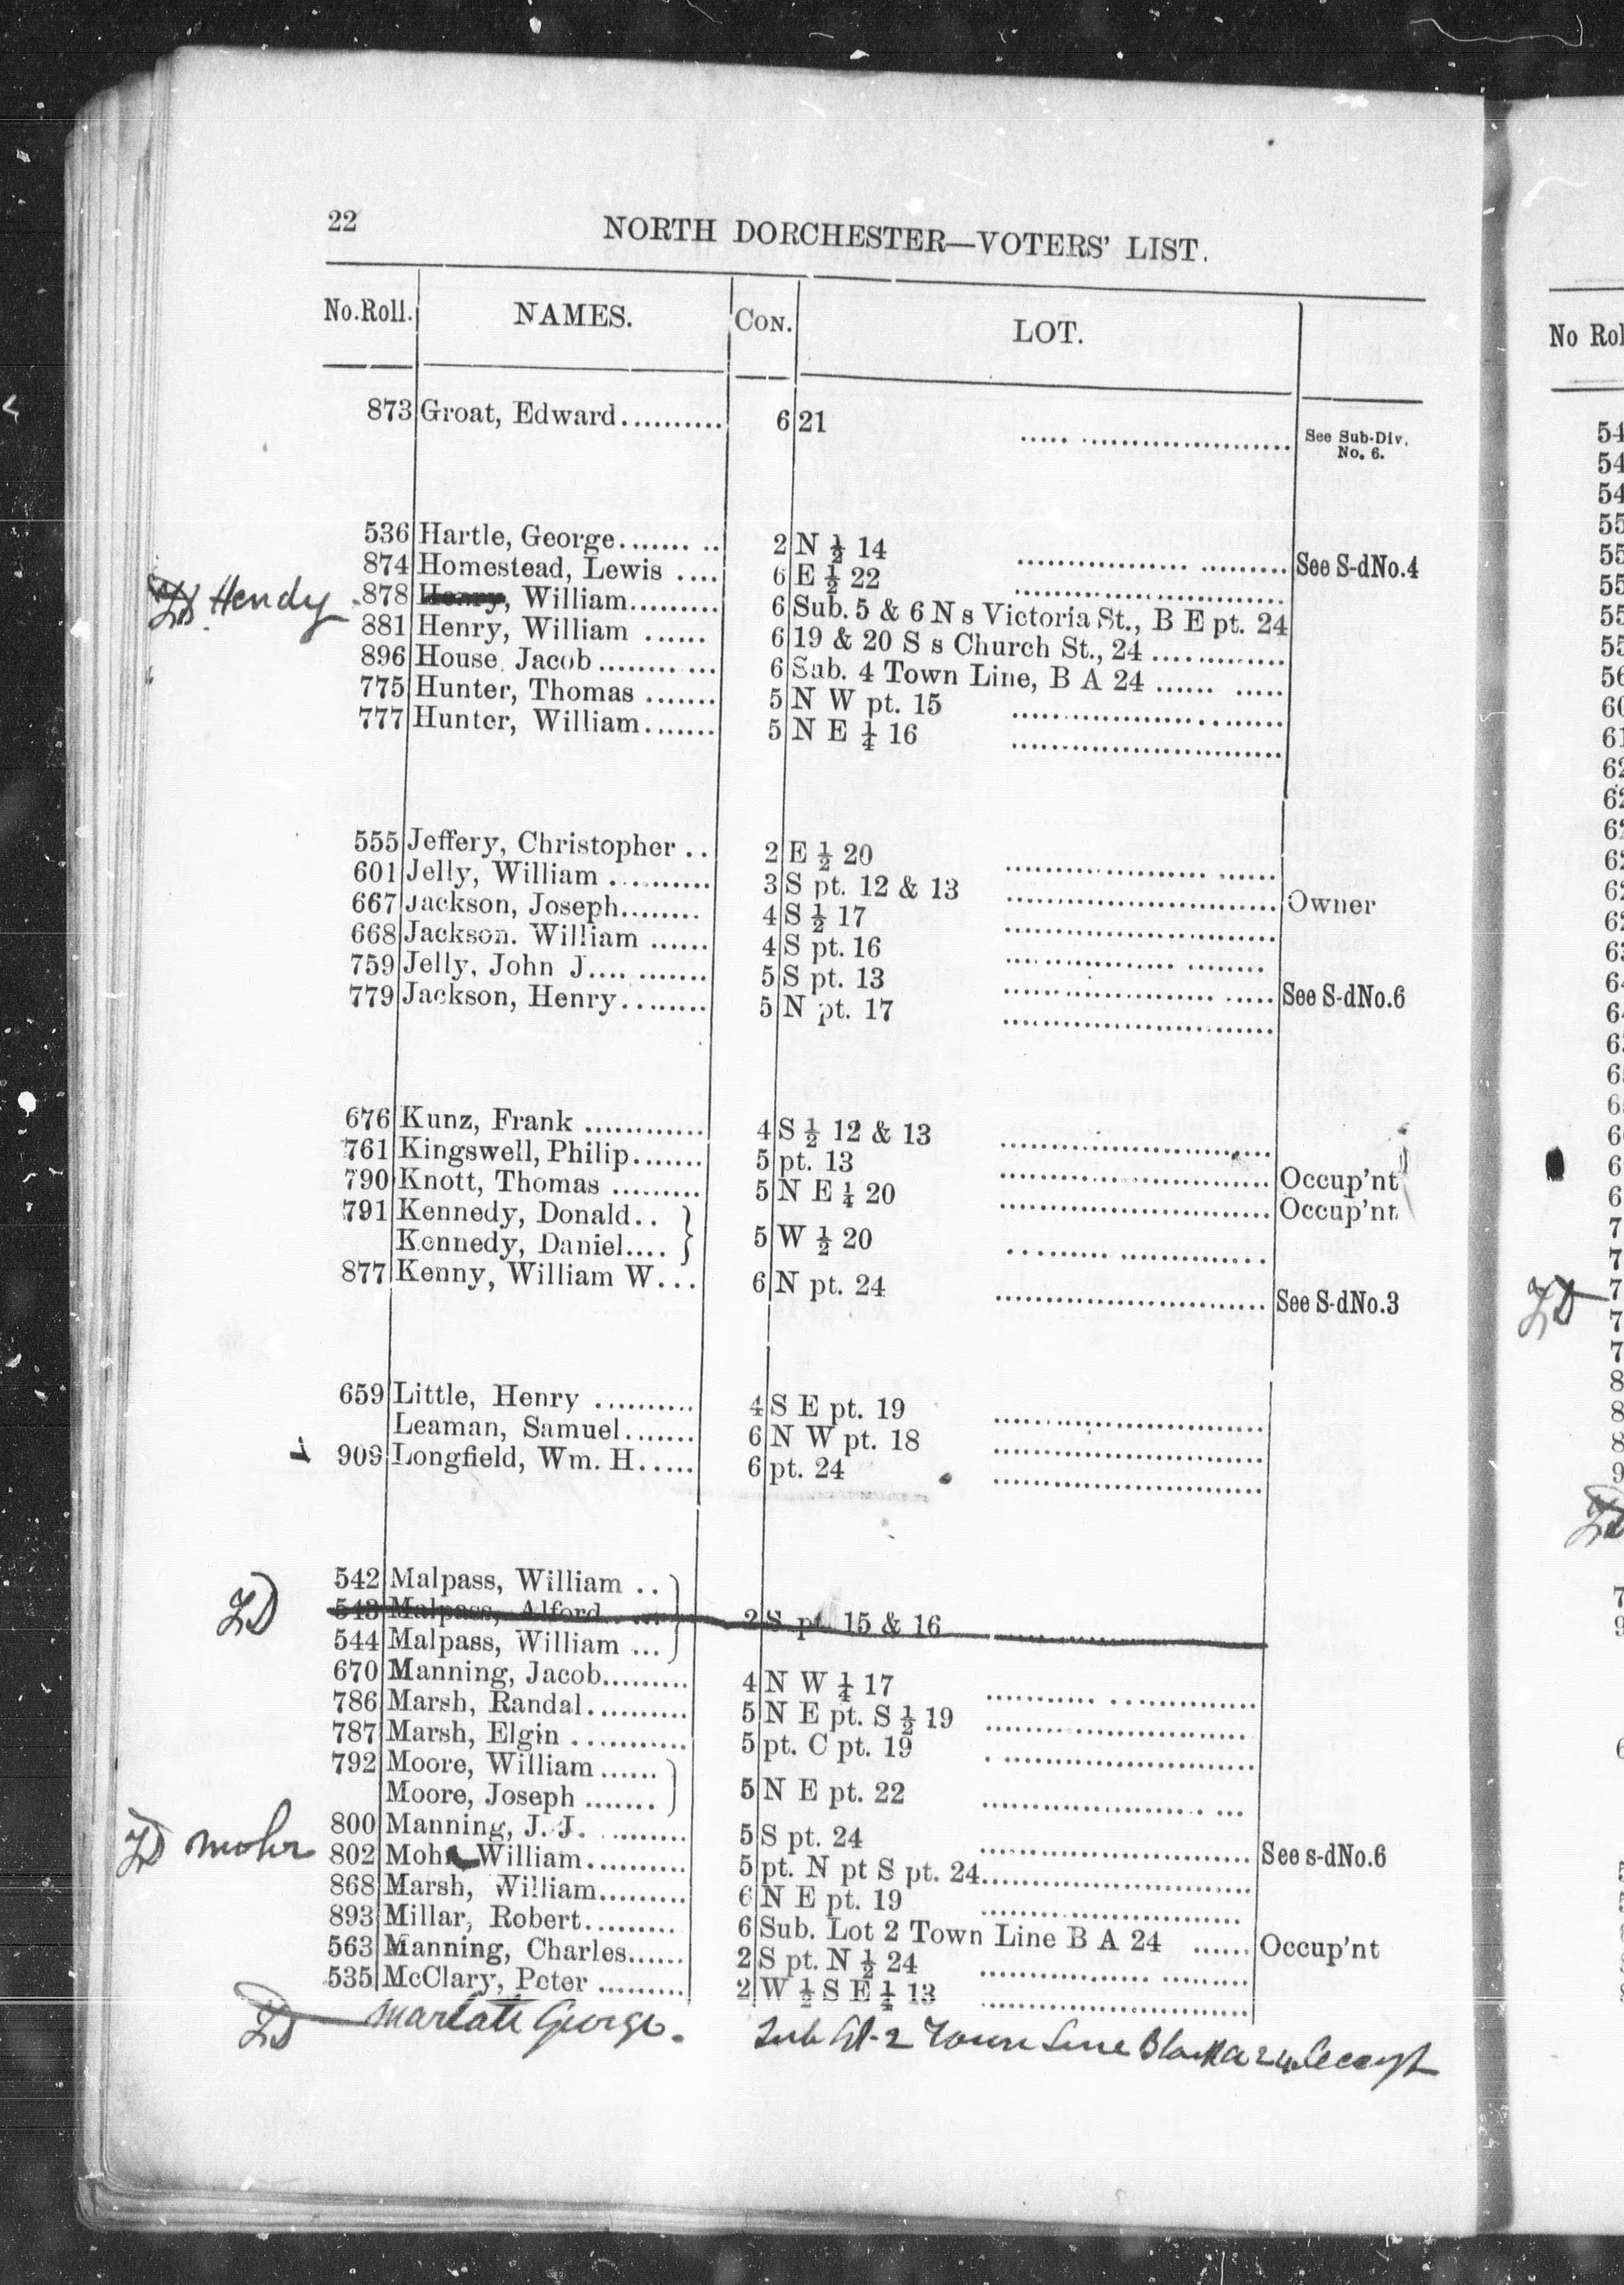 22 NORTH DORCHESTER—VOTERS' LIST.
No.Roll. NAMES. CON. LOT.
873 Groat, Edward.......... 6 21 ..... ...................... See Sub-Div. No. 6.
536 Hartle, George........ .. 2 N ½ 14 ................. ......... See S-dNo.4
874 Homestead, Lewis .... 6 E ½ 22 ...........................
Hendy 878 Henry, William......... 6 Sub. 5 & 6 N s Victoria St., B E pt. 24
881 Henry, William ...... 6 19 & 20 S s Church St., 24 .............
896 House, Jacob ......... ... 6 Sub. 4 Town Line, B A 24 ...... .....
775 Hunter, Thomas ....... 5 N W pt. 15 ...........................
777 Hunter, William....... 5 N E ¼ 16 ...........................
555 Jeffery, Christopher .. 2 E ½ 20 .................... ......
601 Jelly, William .......... 3 S pt. 12 & 13 ........................... Owner
667 Jackson, Joseph........ 4 S ½ 17 ...........................
668 Jackson. William ...... 4 S pt. 16 .................. ........
759 Jelly, John J.... ....... 5 S pt. 13 ..................... ..... See S-dNo.6
779 Jackson, Henry........ 5 N pt. 17 ...........................
676 Kunz, Frank ............ 4 S ½ 12 & 13 ...........................
761 Kingswell, Philip....... 5 pt. 13 ........................... Occup'nt
790 Knott, Thomas ......... 5 N E ¼ 20 ........................... Occup'nt
791 Kennedy, Donald.. }
Kennedy, Daniel.... } 5 W ½ 20 .......... ...............
877 Kenny, William W... 6 N pt. 24 ........................... See S-dNo.3
659 Little, Henry .......... 4 S E pt. 19 ...........................
Leaman, Samuel....... 6 N W pt. 18 ...........................
909 Longfield, Wm. H..... 6 pt. 24 ...........................
542 Malpass, William .. }
543 Malpass, Alford.. ... } 2 S pt. 15 & 16 ...........................
544 Malpass, William ... }
670 Manning, Jacob......... 4 N W ¼ 17 ........... ...............
786 Marsh, Randal.......... 5 N E pt. S ½ 19 ..........................
787 Marsh, Elgin ........... 5 pt. C pt. 19 . .........................
792 Moore, William ...... }
Moore, Joseph ....... } 5 N E pt. 22 ...................... ...
800 Manning, J. J. ......... 5 S pt. 24 ........................... See s-dNo.6
mohr 802 Moh William.......... 5 pt. N pt S pt. 24...........................
868 Marsh, William......... 6 N E pt. 19 ..........................
893 Millar, Robert......... 6 Sub. Lot 2 Town Line B A 24 ...... Occup'nt
563 Manning, Charles...... 2 S pt. N ½ 24 ................. .........
535 McClary, Peter ......... 2 W ½ S E ¼ 13 ...........................
Marlatt George. Sub Lot 2 Town Line Block A 24
No Rol